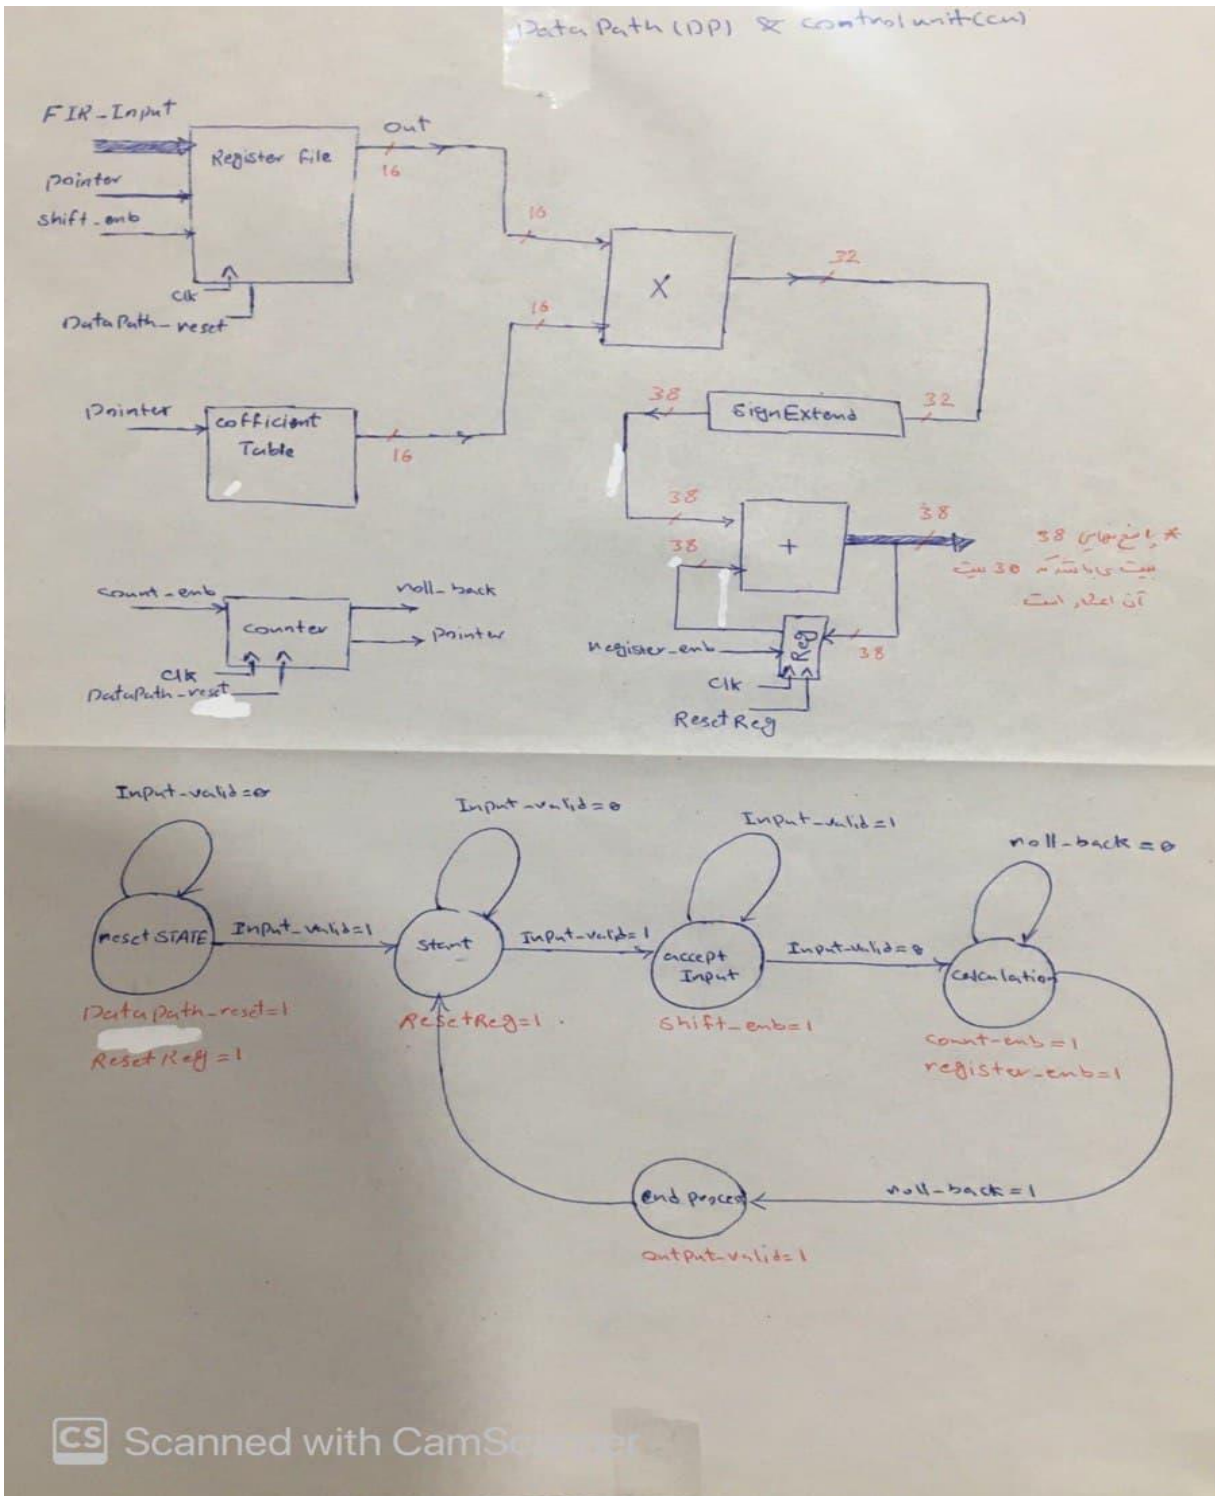 Data Path (DP) & control unit (cu)
FIR-Input
pointer
shift-enb
Register file
clk
DataPath-reset
out
16
16
16
X
32
pointer
cofficient
Table
16
38
SignExtend
32
38
38
+
38
* پاسخ نهایی 38
بیت می باشد که 30 بیت
آن اعشار است
count-enb
counter
roll-back
pointer
clk
DataPath-reset
register-enb
Reg
38
clk
ResetReg
Input-valid=0
Input-valid=0
Input-valid=1
roll-back=0
reset STATE
Input-valid=1
start
Input-valid=1
accept
Input
Input-valid=0
calculation
Data path-reset=1
ResetReg=1
ResetReg=1.
Shift-enb=1
count-enb=1
register-enb=1
end proces
roll-back=1
output-valid=1
CS Scanned with CamScanner